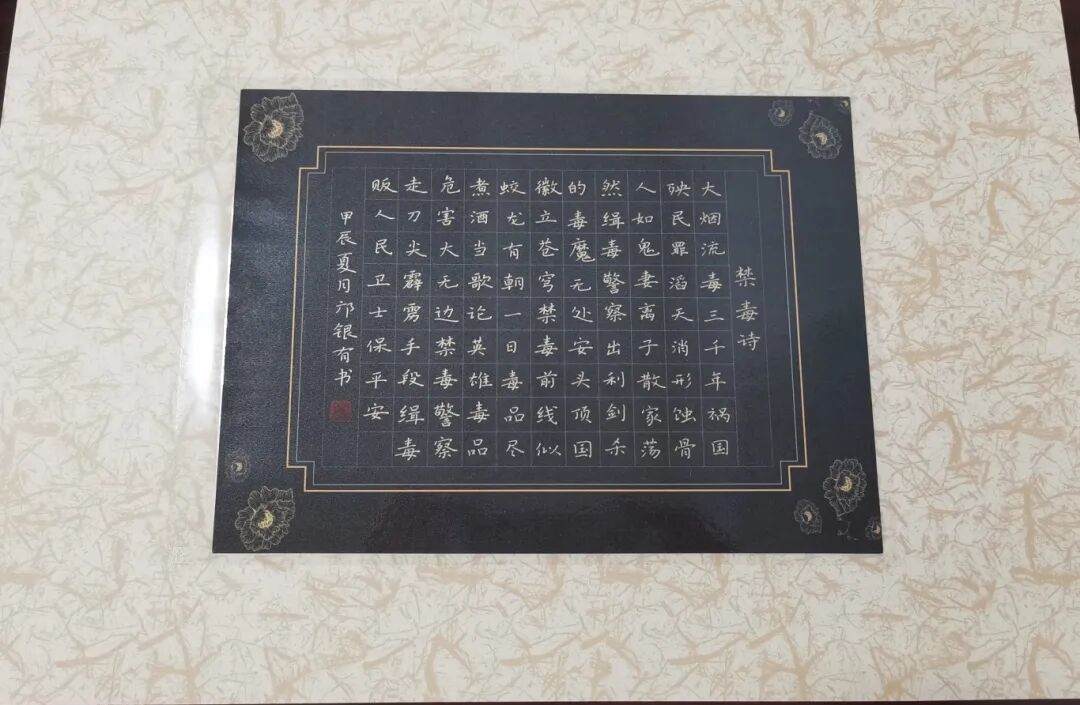 禁毒诗
大烟流毒三千年祸国
殃民罪滔天消形蚀骨
人如鬼妻离子散家荡
然缉毒警察出利剑杀
的毒魔无处安头顶国
徽立苍穹禁毒前线似
蛟龙有朝一日毒品尽
煮酒当歌论英雄毒品
危害大无边禁毒警察
走刀尖霹雳手段缉毒
贩人民卫士保平安
甲辰夏月邝银有书